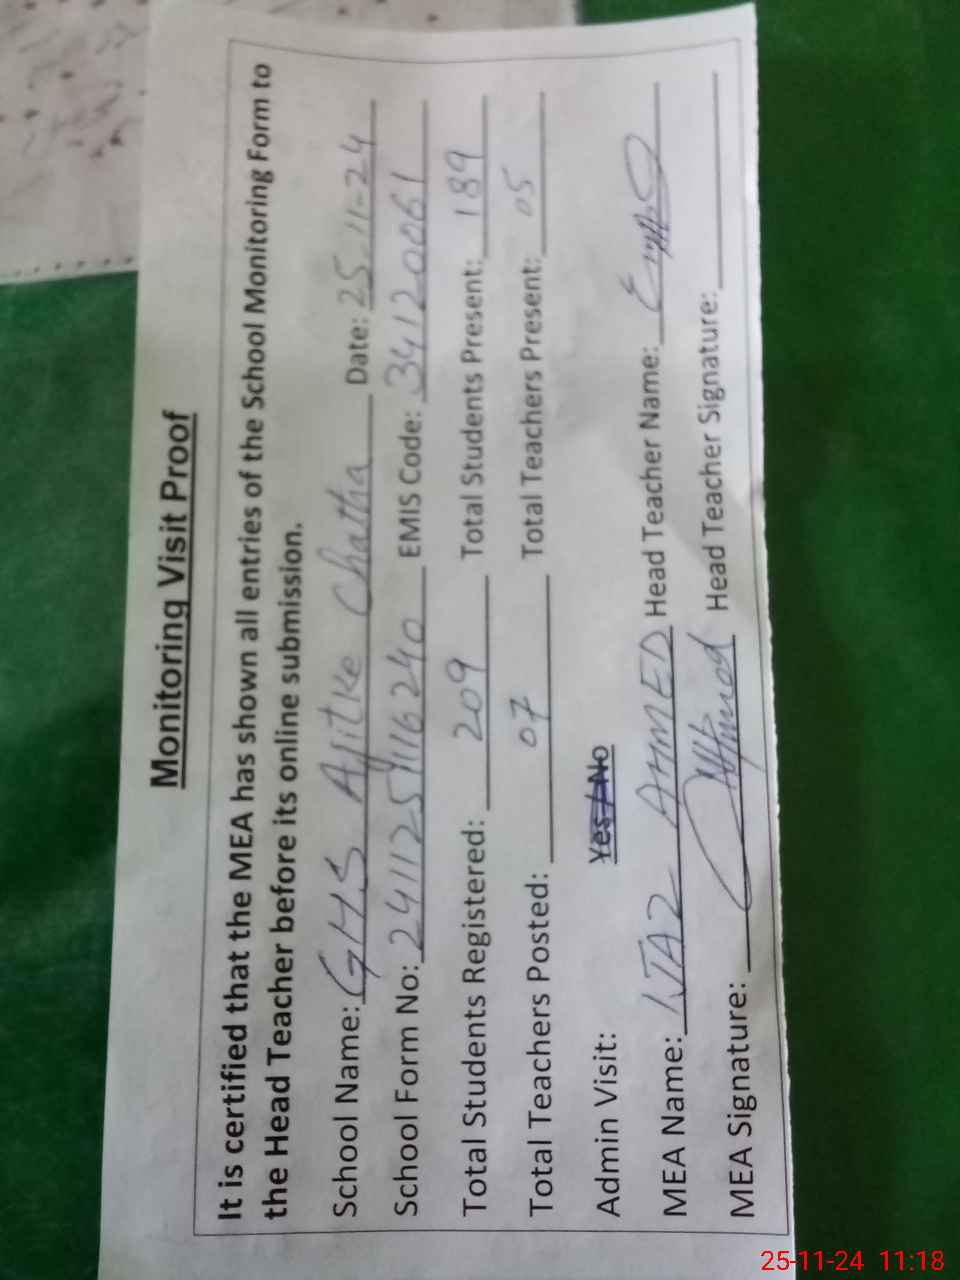 Monitoring Visit Proof
It is certified that the MEA has shown all entries of the School Monitoring Form to
the Head Teacher before its online submission.
School Name: GHS Ajitke Chatha Date: 25-11-24
School Form No: 241125111116240 EMIS Code: 34120061
Total Students Registered: 209 Total Students Present: 189
Total Teachers Posted: 07 Total Teachers Present: 05
Admin Visit: Yes / No
MEA Name: IJAZ AHMED Head Teacher Name:
MEA Signature: Head Teacher Signature:
25-11-24 11:18